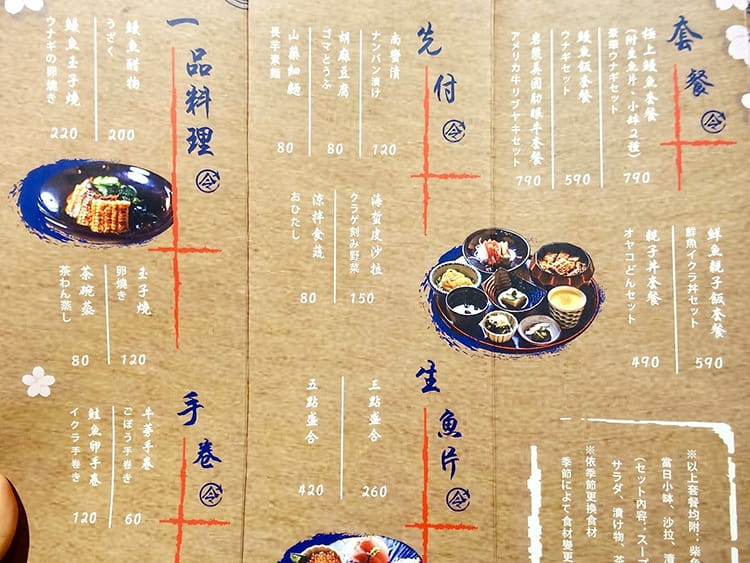 套餐
極上鰻魚套餐
(附生魚片、小鉢2種)
豪華ウナギセット
790
鰻魚飯套餐
ウナギセット
590
岩漿美國肋眼牛套餐
アメリカ牛リブヤキセット
790
鮮魚親子飯套餐
鮮魚イクラ丼セット
590
親子丼套餐
オヤコどんセット
490
※以上套餐均附：柴魚
當日小缽、沙拉、漬
(セット内容：スープ
サラダ、漬け物、茶
※依季節更換食材
季節によて食材變更
先付
南蠻漬
ナンバン漬け
120
胡麻豆腐
ゴマとうふ
80
山藥細麵
長芋素麵
80
海蜇皮沙拉
クラゲ刻み野菜
150
涼拌食蔬
おひたし
80
生魚片
三點盛合
260
五點盛合
420
一品料理
鰻魚醋物
うざく
200
鰻魚玉子燒
ウナギの卵燒き
220
玉子燒
卵燒き
120
茶碗蒸
茶わん蒸し
80
手卷
牛蒡手卷
ごぼう手巻き
60
鮭魚卵手卷
イクラ手巻き
120